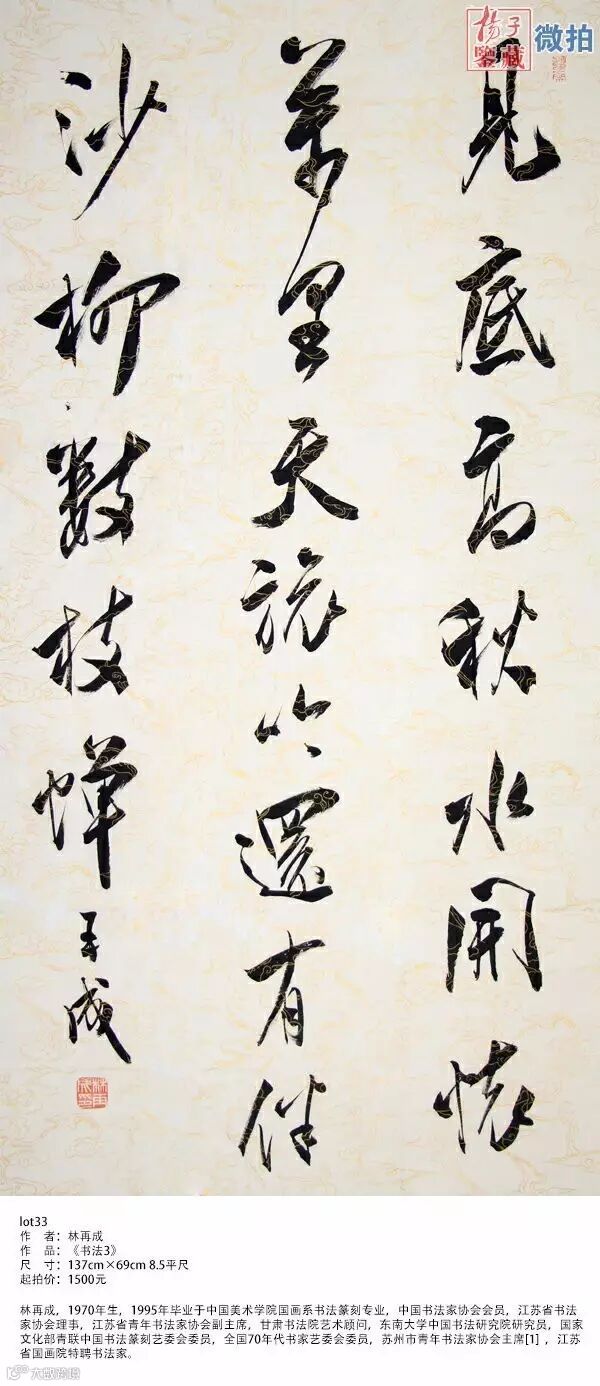 揚子
鑒藏
微拍
見底高秋水開懷
萬里天旅吟還有伴
沙柳數枝蟬 再成
lot33
作 者：林再成
作 品：《书法3》
尺 寸：137cm×69cm 8.5平尺
起拍价：1500元
林再成，1970年生，1995年毕业于中国美术学院国画系书法篆刻专业，中国书法家协会会员，江苏省书法
家协会理事，江苏省青年书法家协会副主席，甘肃书法院艺术顾问，东南大学中国书法研究院研究员，国家
文化部青联中国书法篆刻艺委会委员，全国70年代书家艺委会委员，苏州市青年书法家协会主席[1]，江苏
省国画院特聘书法家。
大数跨境